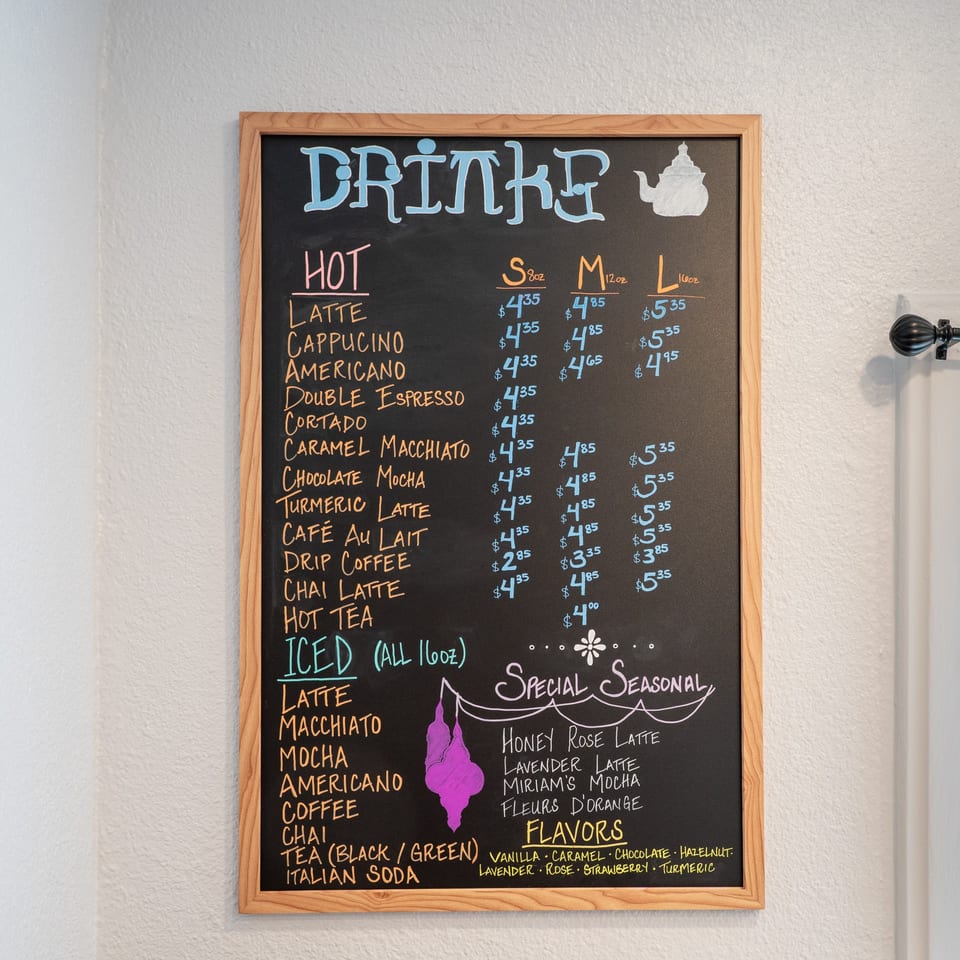 DRINKS
HOT S 8oz M 12oz L 16oz
LATTE $4.35 $4.85 $5.35
CAPPUCINO $4.35 $4.85 $5.35
AMERICANO $4.35 $4.65 $4.95
DOUBLE ESPRESSO $4.35
CORTADO $4.35
CARAMEL MACCHIATO $4.35 $4.85 $5.35
CHOCOLATE MOCHA $4.35 $4.85 $5.35
TURMERIC LATTE $4.35 $4.85 $5.35
CAFÉ AU LAIT $4.35 $4.85 $5.35
DRIP COFFEE $2.85 $3.35 $3.85
CHAI LATTE $4.35 $4.85 $5.35
HOT TEA $4.00
ICED (ALL 16oz)
LATTE
MACCHIATO
MOCHA
AMERICANO
COFFEE
CHAI
TEA (BLACK / GREEN)
ITALIAN SODA
SPECIAL SEASONAL
HONEY ROSE LATTE
LAVENDER LATTE
MIRIAM'S MOCHA
FLEURS D'ORANGE
FLAVORS
VANILLA · CARAMEL · CHOCOLATE · HAZELNUT ·
LAVENDER · ROSE · STRAWBERRY · TURMERIC